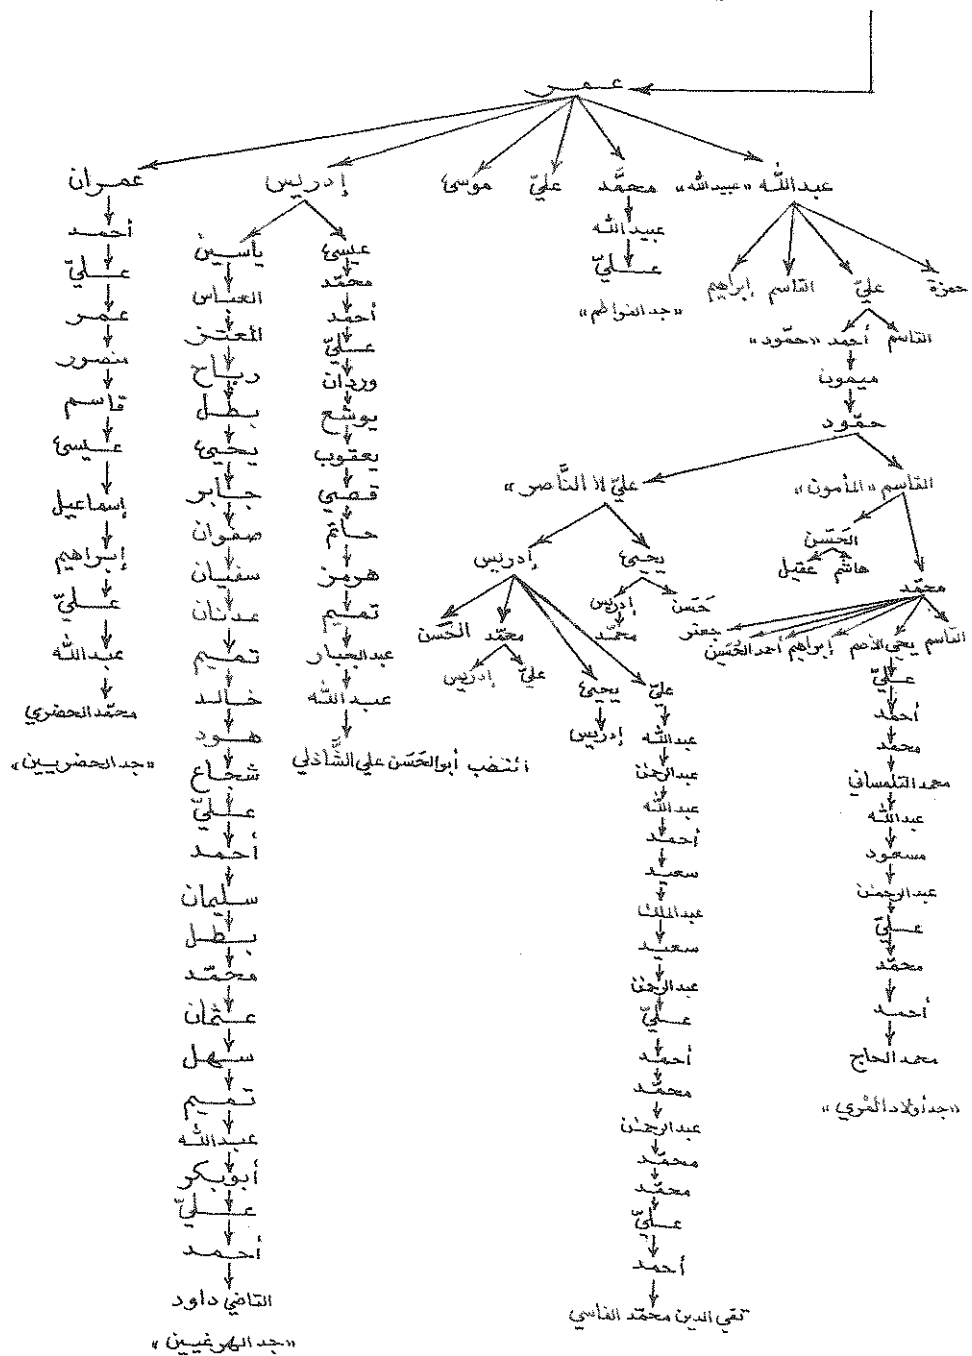 عمر
عبدالله «عبيدالله»
محمّد
عليّ
موسى
إدريس
عمران
حمزة
عليّ
القاسم
إبراهيم
القاسم
أحمد «حمّود»
ميمون
حمّود
القاسم «المأمون»
عليّ «الناصر»
الحَسَن
هاشم
عقيل
محمّد
القاسم
يحيى الأصم
إبراهيم
أحمد
الحُسَين
جعفر
عليّ
أحمد
محمد
محمد التلمساني
عبدالله
مسعود
عبدالرحمٰن
عليّ
محمّد
أحمد
محمد الحاج
يحيى
إدريس
حَسَن
إدريس
محمّد
عليّ
يحيى
محمّد
الحَسَن
إدريس
عليّ
إدريس
عبدالله
عبدالرحمٰن
عبدالله
أحمد
سعيد
عبدالملك
سعيد
عبدالرحمٰن
عليّ
أحمد
محمّد
عبدالرحمٰن
محمّد
محمّد
عليّ
أحمد
تقي الدين محمّد الفاسي
عبيدالله
عليّ
«جد الفواطم»
عيسى
محمّد
أحمد
عليّ
وردان
يوشع
يعقوب
قصي
حاتم
هرمز
تميم
عبدالجبار
عبدالله
أبوالحَسَن علي الشَّاذلي
ياسين
العباس
المعتز
رباح
بطل
يحيى
جابر
صفوان
سفيان
عدنان
تميم
خالد
هود
شجاع
عليّ
أحمد
سليمان
بطل
محمّد
عثمان
سهل
تميم
عبدالله
أبوبكر
عليّ
أحمد
القاضي داود
أحمد
عليّ
عمر
منصور
قاسم
عيسى
إسماعيل
إبراهيم
عليّ
عبدالله
محمّد الحضري
«جد الحضريين»